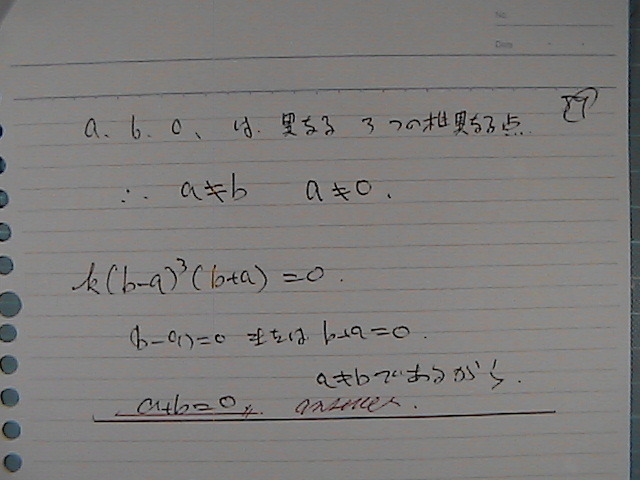 No.
Date
a、b、0、は、異なる 3つの相異なる点
∴ a≠b a≠0.
k(b-a)³(b+a)=0.
(b-a)=0 または b+a=0.
a≠bであるから.
a+b=0〃 answer.